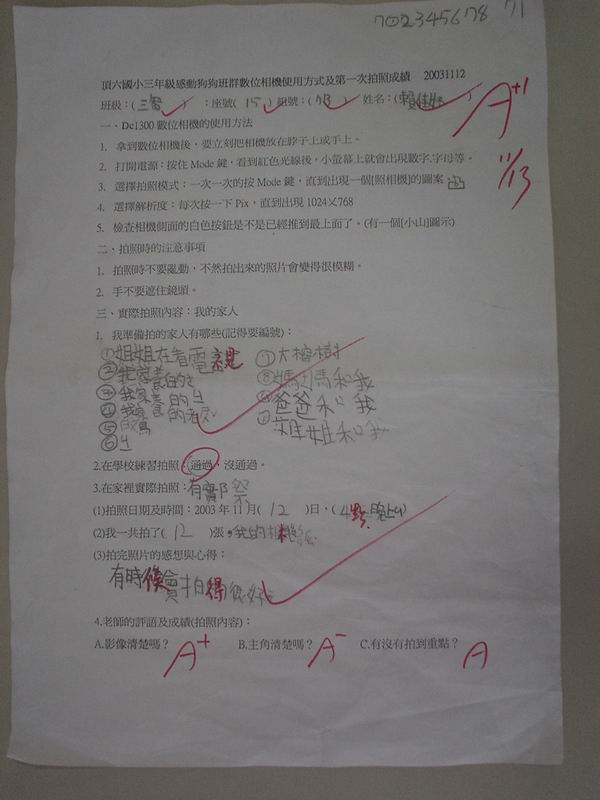 702345678 71
頂六國小三年級感動狗狗班群數位相機使用方式及第一次拍照成績 20031112
班級：(三智)：座號(15)組號：( )姓名：(賴佳 )
A+1
11/13
一、Dc1300 數位相機的使用方法
1. 拿到數位相機後，要立刻把相機放在脖子上或手上。
2. 打開電源：按住 Mode 鍵，看到紅色光線後，小螢幕上就會出現數字.字母等。
3. 選擇拍照模式：一次一次的按 Mode 鍵，直到出現一個[照相機]的圖案
4. 選擇解析度：每次按一下 Pix，直到出現 1024X768
5. 檢查相機側面的白色按鈕是不是已經推到最上面了。(有一個[小山]圖示)
二、拍照時的注意事項
1. 拍照時不要亂動，不然拍出來的照片會變得很模糊。
2. 手不要遮住鏡頭。
三、實際拍照內容：我的家人
1. 我準備拍的家人有哪些(記得要編號)：
①姐姐在看電視 ⑦大榕樹
②我家養的 ⑧媽媽和我
③我家養的 爸爸和我
④我家養的老 姐和我
⑤
⑥
2.在學校練習拍照：通過，沒通過。
3.在家裡實際拍照：有
(1)拍照日期及時間：2003 年 11 月( 12 )日，(4點 晚上)
(2)我一共拍了( 12 )張，我的相機
(3)拍完照片的感想與心得：
有時候會拍得很好
4.老師的評語及成績(拍照內容)：
A.影像清楚嗎？ A+ B.主角清楚嗎？ A- C.有沒有拍到重點？ A